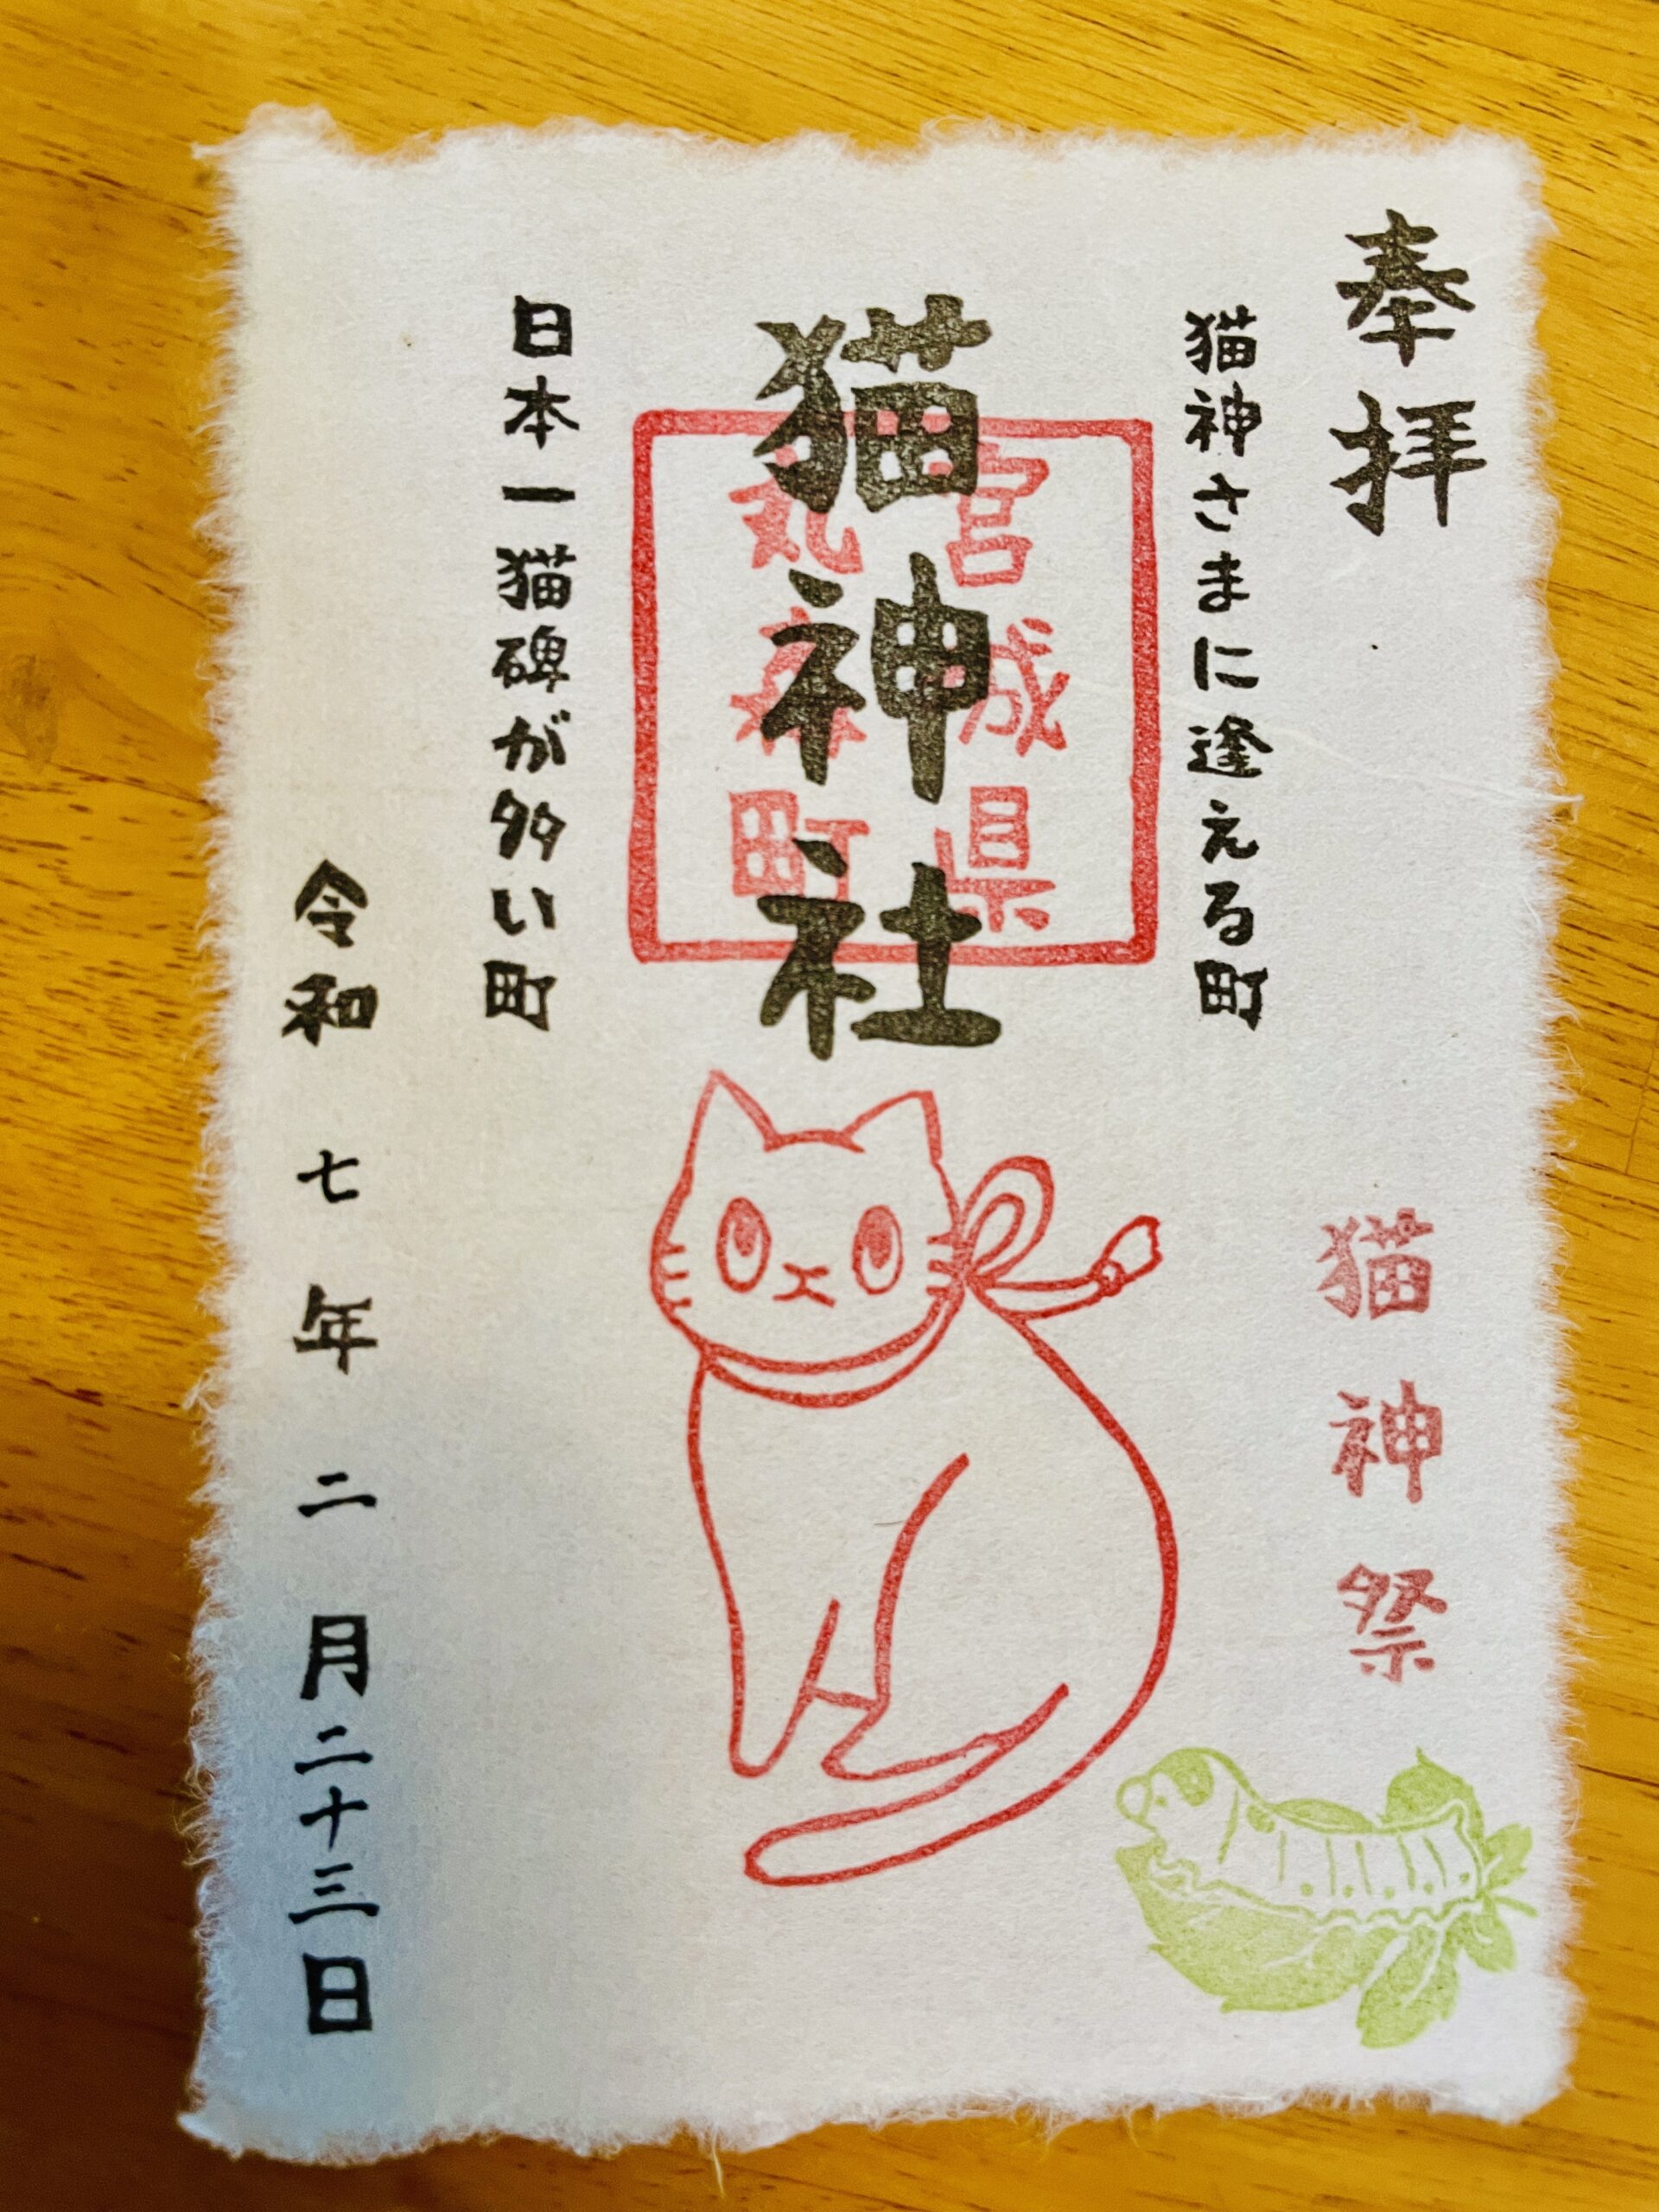 奉拝
猫神さまに逢える町
猫神社
宮城県
丸森町
日本一猫碑が多い町
令和七年二月二十三日
猫神祭